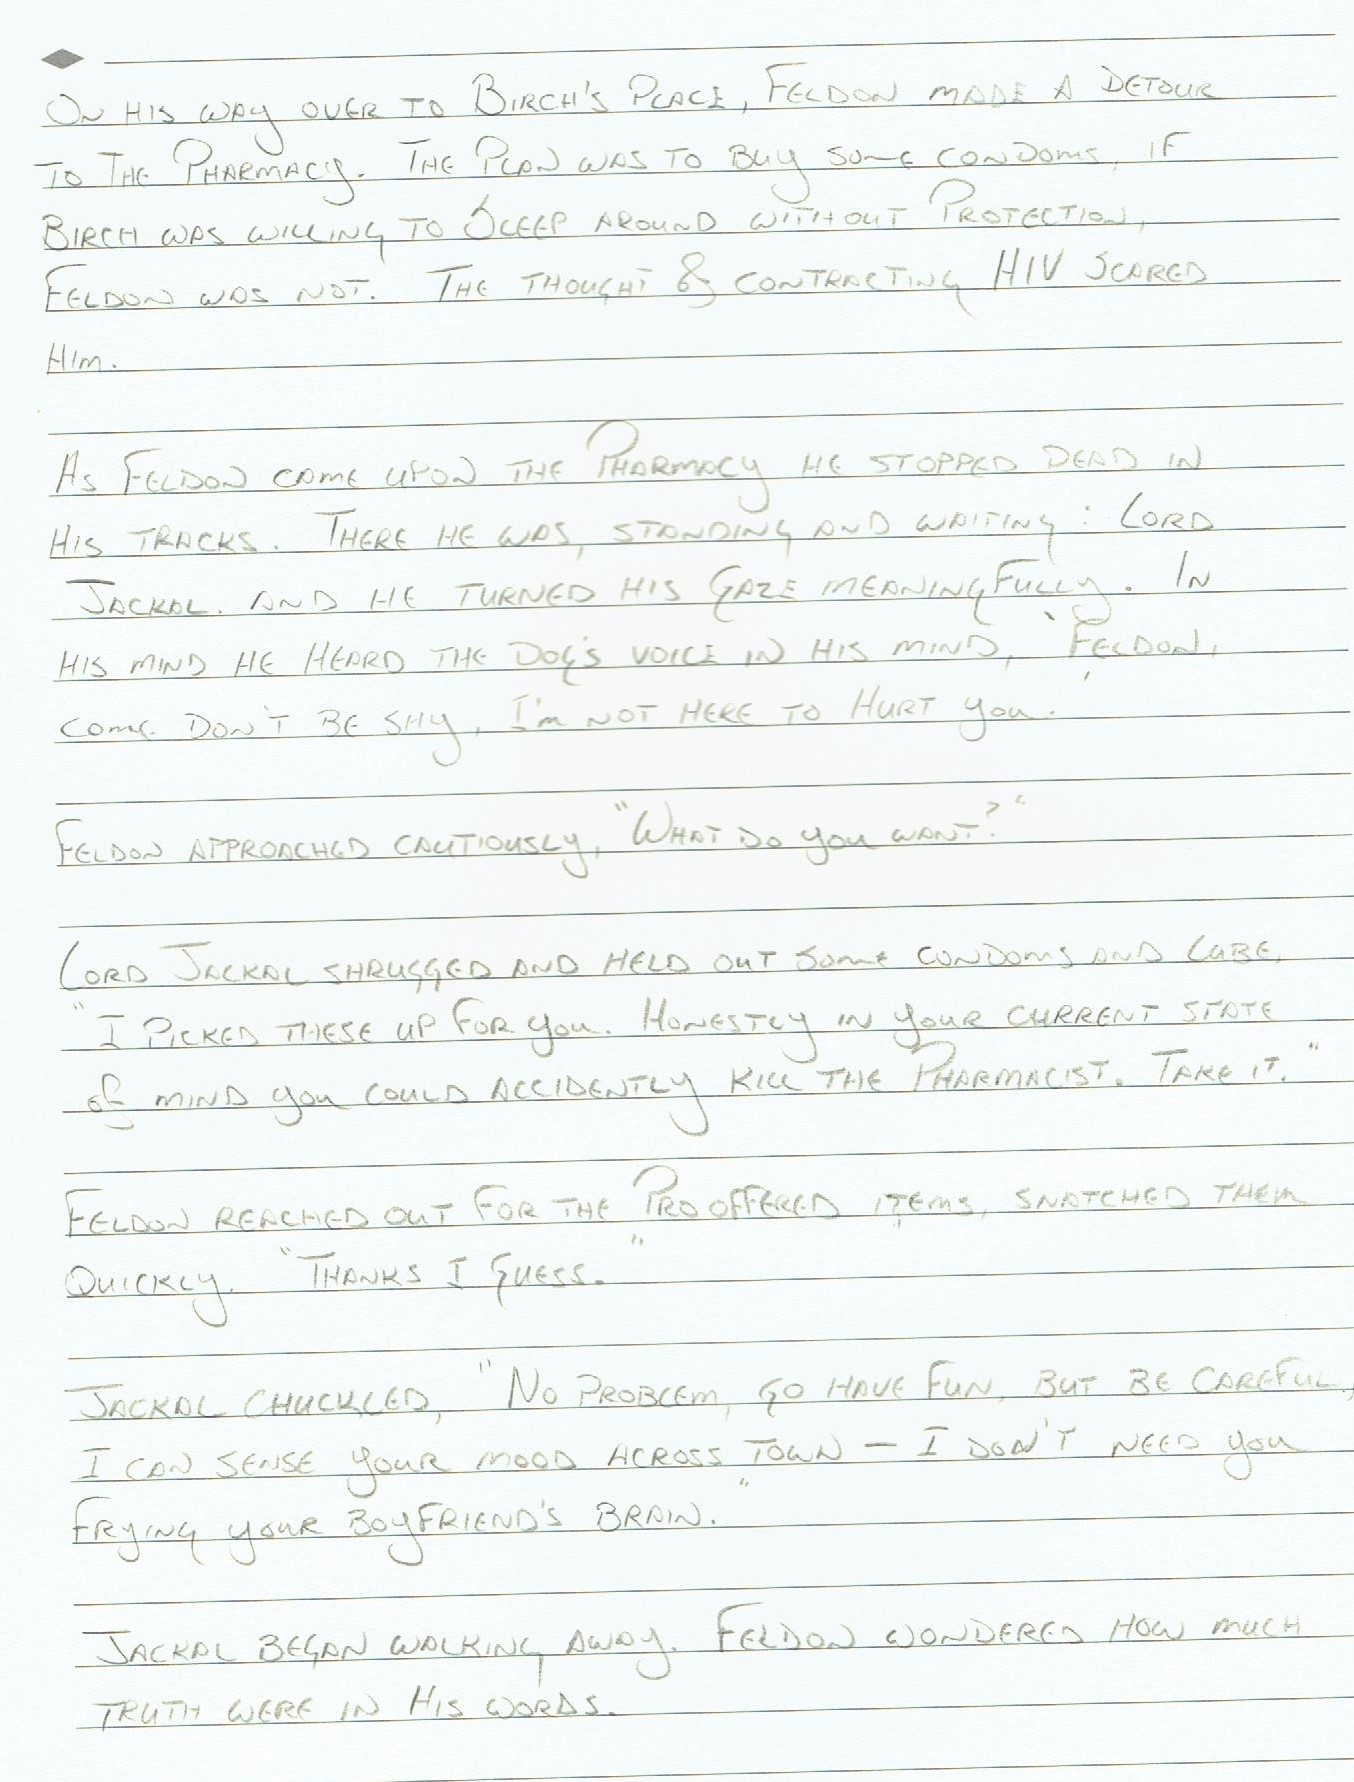 On his way over to Birch's place, Feldon made a detour
to the Pharmacy. The plan was to buy some condoms, if
Birch was willing to sleep around without protection,
Feldon was not. The thought of contracting HIV scared
him.
As Feldon came upon the Pharmacy he stopped dead in
his tracks. There he was, standing and waiting: Lord
Jackal. And he turned his gaze meaningfully. In
his mind he heard the Dog's voice in his mind, "Feldon,
come. Don't be shy, I'm not here to hurt you.'
Feldon approached cautiously, "What do you want?"
Lord Jackal shrugged and held out some condoms and lube,
"I picked these up for you. Honestly in your current state
of mind you could accidently kill the Pharmacist. Take it."
Feldon reached out for the prooffered items, snatched them
quickly. "Thanks I guess."
Jackal chuckled, "No problem, go have fun, but be careful,
I can sense your mood across town – I don't need you
frying your boyfriend's brain."
Jackal began walking away. Feldon wondered how much
truth were in his words.